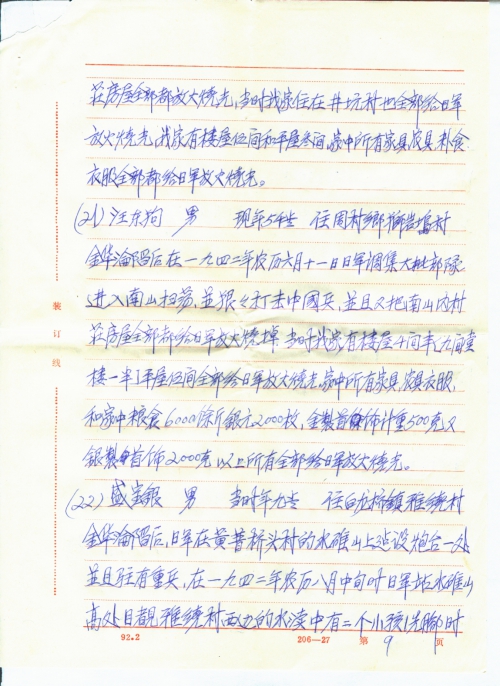 庄房屋全部都放火烧光,当时我家住在井坑村也全部给日军
放火烧光,我家有楼屋伍间和平屋叁间,家中所有家具,农具,粮食
衣服全部都给日军放火烧光。
(21)汪东狗 男 现年54岁 住周村乡
金华沦陷后在一九四二年农历六月十一日日军调集大批部队
进入南山扫荡,並狠々打击中國兵,並且又把南山内村
庄房屋全部都给日军放火烧掉 当时我家有楼屋十间半,九间堂
楼一半,平屋伍间全部给日军放火烧光,家中所有家具,农具衣服,
和家中粮食6000馀斤银元2000枚,金製首饰计重500克又
银製首饰2000克以上所有全部给日军放火烧光。
(22)盛宝银 男 当时年九岁 住白龙桥镇雅绕村
金华沦陷后,日军在黄普桥头村的水碓山上建设炮台一处
並且驻有重兵,在一九四二年农历八月中旬时日军站水碓山
高处目观雅绕村西边的水渎中有二个小孩洗脚时
装订线
92.2 206—27 第9页